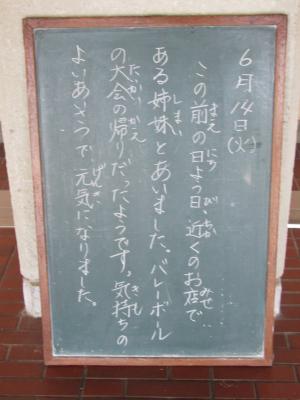 6月14日(火)
この前の日よう日、近くのお店で
ある姉妹とあいました。バレーボール
の大会の帰りだったようです。気持ちの
よいあいさつで元気になりました。